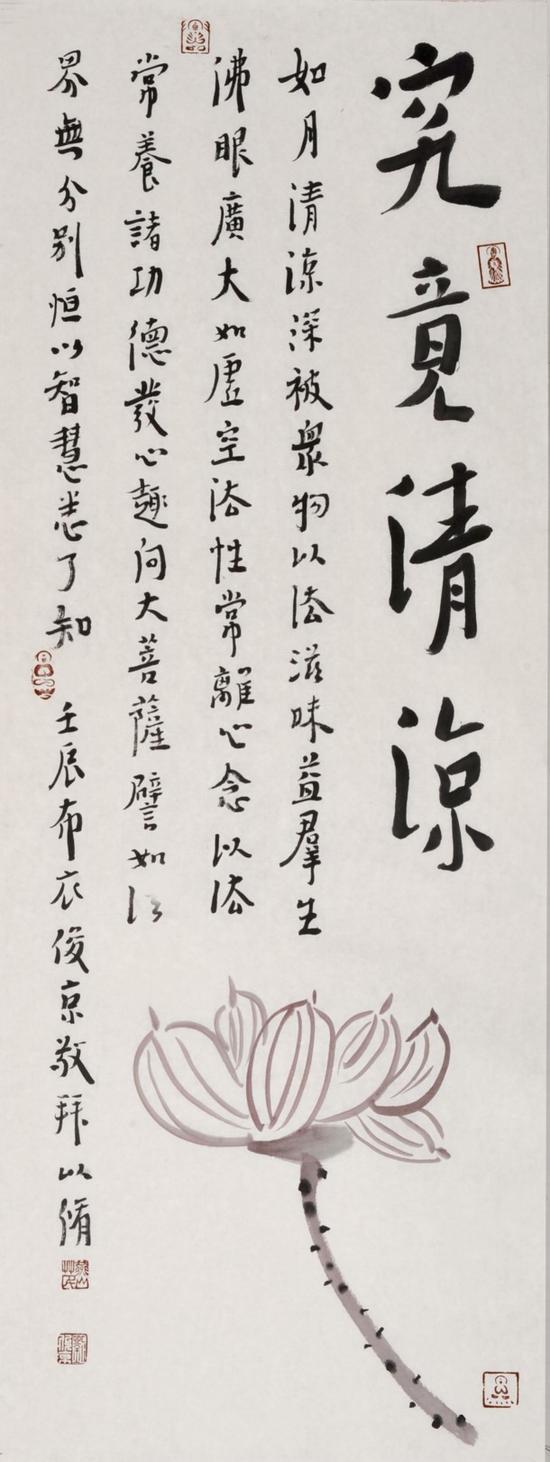 究竟清涼
如月清涼深被衆物以法滋味益羣生
佛眼廣大如虛空法性常離心念以法
常養諸功德發心趣向大菩薩譬如法
界無分別恒以智慧悉了知 壬辰布衣俊京敬拜以脩